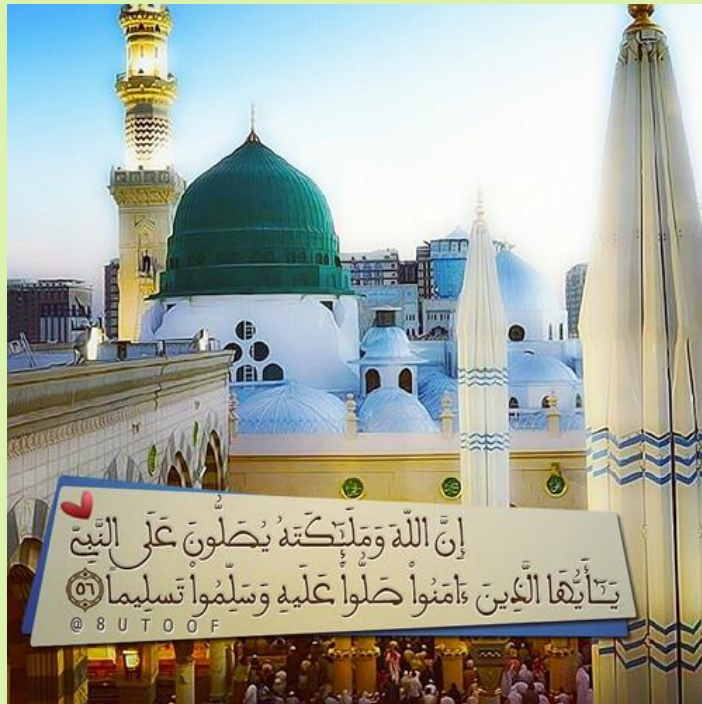 إِنَّ اللَّهَ وَمَلَٰٓئِكَتَهُ يُصَلُّونَ عَلَى النَّبِيِّ
يَٰٓأَيُّهَا الَّذِينَ ءَامَنُوا۟ صَلُّوا۟ عَلَيْهِ وَسَلِّمُوا۟ تَسْلِيماً ٥٦
@8UTOOF